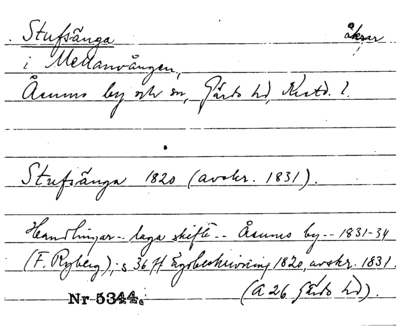 Stufsänga åkrar
i Mellanvången,
Åsums by och sn, Gärds hd, Krstd. l.
Stufsänga 1820 (avskr. 1831).
Handlingar -- laga skifte -- Åsums by -- 1831-34
(F. Ryberg), s 36 ff Egobeskrivning 1820, avskr. 1831.
Nr 5344. (A 26 Gärds hd).